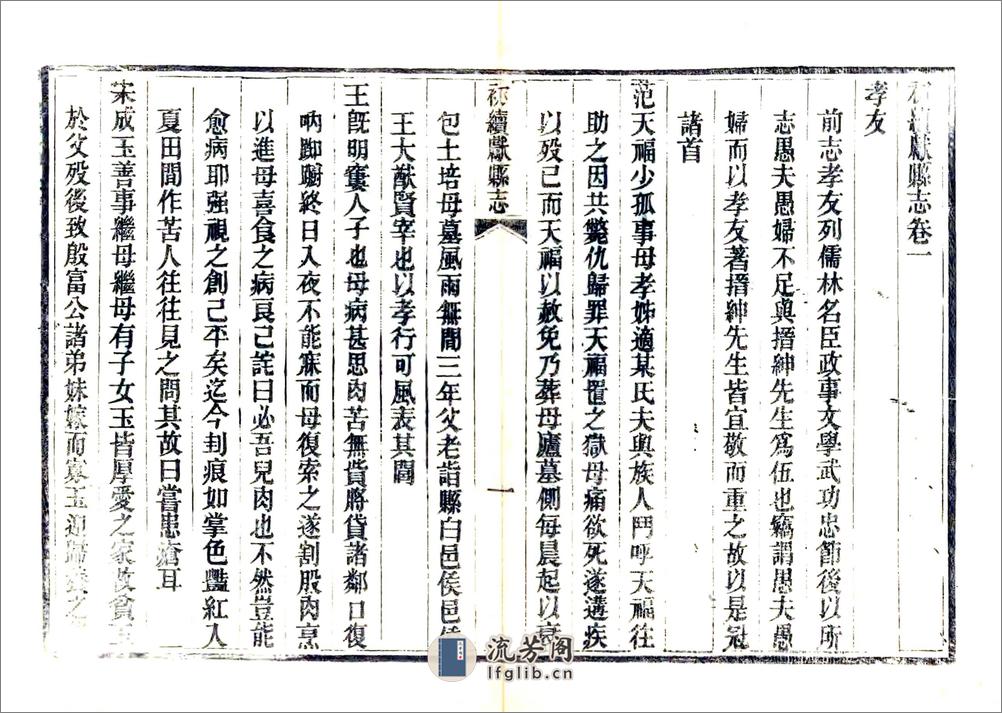 初續獻縣志卷一
孝友
前志孝友列儒林名臣政事文學武功忠節後以所
志愚夫愚婦不足與搢紳先生爲伍也竊謂愚夫愚
婦而以孝友著搢紳先生皆宜敬而重之故以是冠
諸首
范天福少孤事母孝姊適某氏夫與族人鬥呼天福往
助之因共斃仇歸罪天福置之獄母痛欲死遂遘疾
以歿已而天福以赦免乃葬母廬墓側每晨起以衰
初續獻縣志
一
包土培母墓風雨無間三年父老詣縣白邑侯邑侯
王大猷賢宰也以孝行可風表其閭
王旣明窶人子也母病甚思肉苦無貲將貸諸鄰口復
吶踟躕終日入夜不能寐而母復索之遂割股肉烹
以進母喜食之病良已詫曰必吾兒肉也不然豈能
愈病耶强視之創已平矣迄今刲痕如掌色豔紅人
夏田間作苦人往往見之問其故曰嘗患瘡耳
宋成玉善事繼母繼母有子女玉皆厚愛之家故貧玉
於父歿後致殷富公諸弟妹嫁而寡玉迎歸養之
流芳阁
lfglib.cn